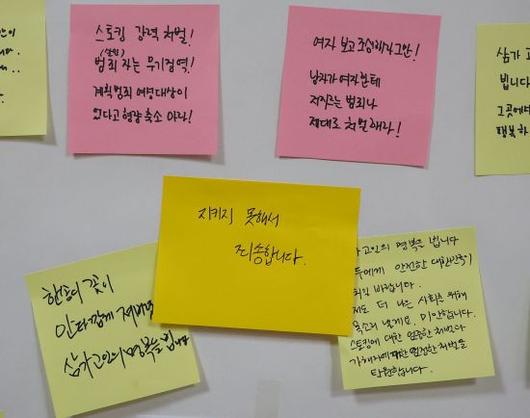 스토킹 강력 처벌!
(살인)
범죄 자는 무기징역!
계획범죄 여성대상이
없다고 형량 축소 마라!
여자 보고 조심해라 그만!
남자가 여자한테
저지르는 범죄나
제대로 처벌해라!
삼가 고
빕니다
그곳에서
행복하
지키지 못해서
죄송합니다.
한송이 꽃이
안타깝게 져버
삼가 고인의 명복을 빕니다
고인의 명복을 빕니다
두에게 안전한 대한민국이
되길 바랍니다.
저도 더 나은 사회를 위해
목소리 낼게요. 미안합니다.
스토킹에 대한 엄중한 처벌과
가해자에 대한 엄정한 처벌을
탄원합니다.